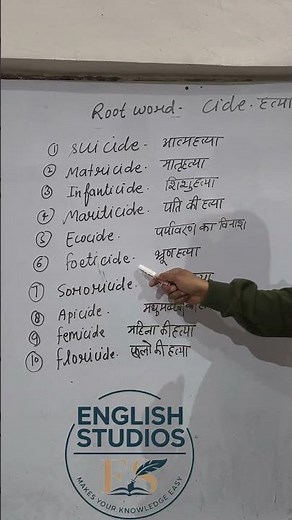 Root word - Cide - हत्या
① Suicide - आत्महत्या
② Matricide - मातृहत्या
③ Infanticide - शिशुहत्या
④ Mariticide - पति की हत्या
⑤ Ecocide - पर्यावरण का विनाश
⑥ Foeticide - भ्रूण हत्या
⑦ Sororicide -
⑧ Apicide -
⑨ femicide महिला की हत्या
⑩ floricide - फूलो की हत्या
ENGLISH
STUDIOS
ES
MAKES YOUR KNOWLEDGE EASY